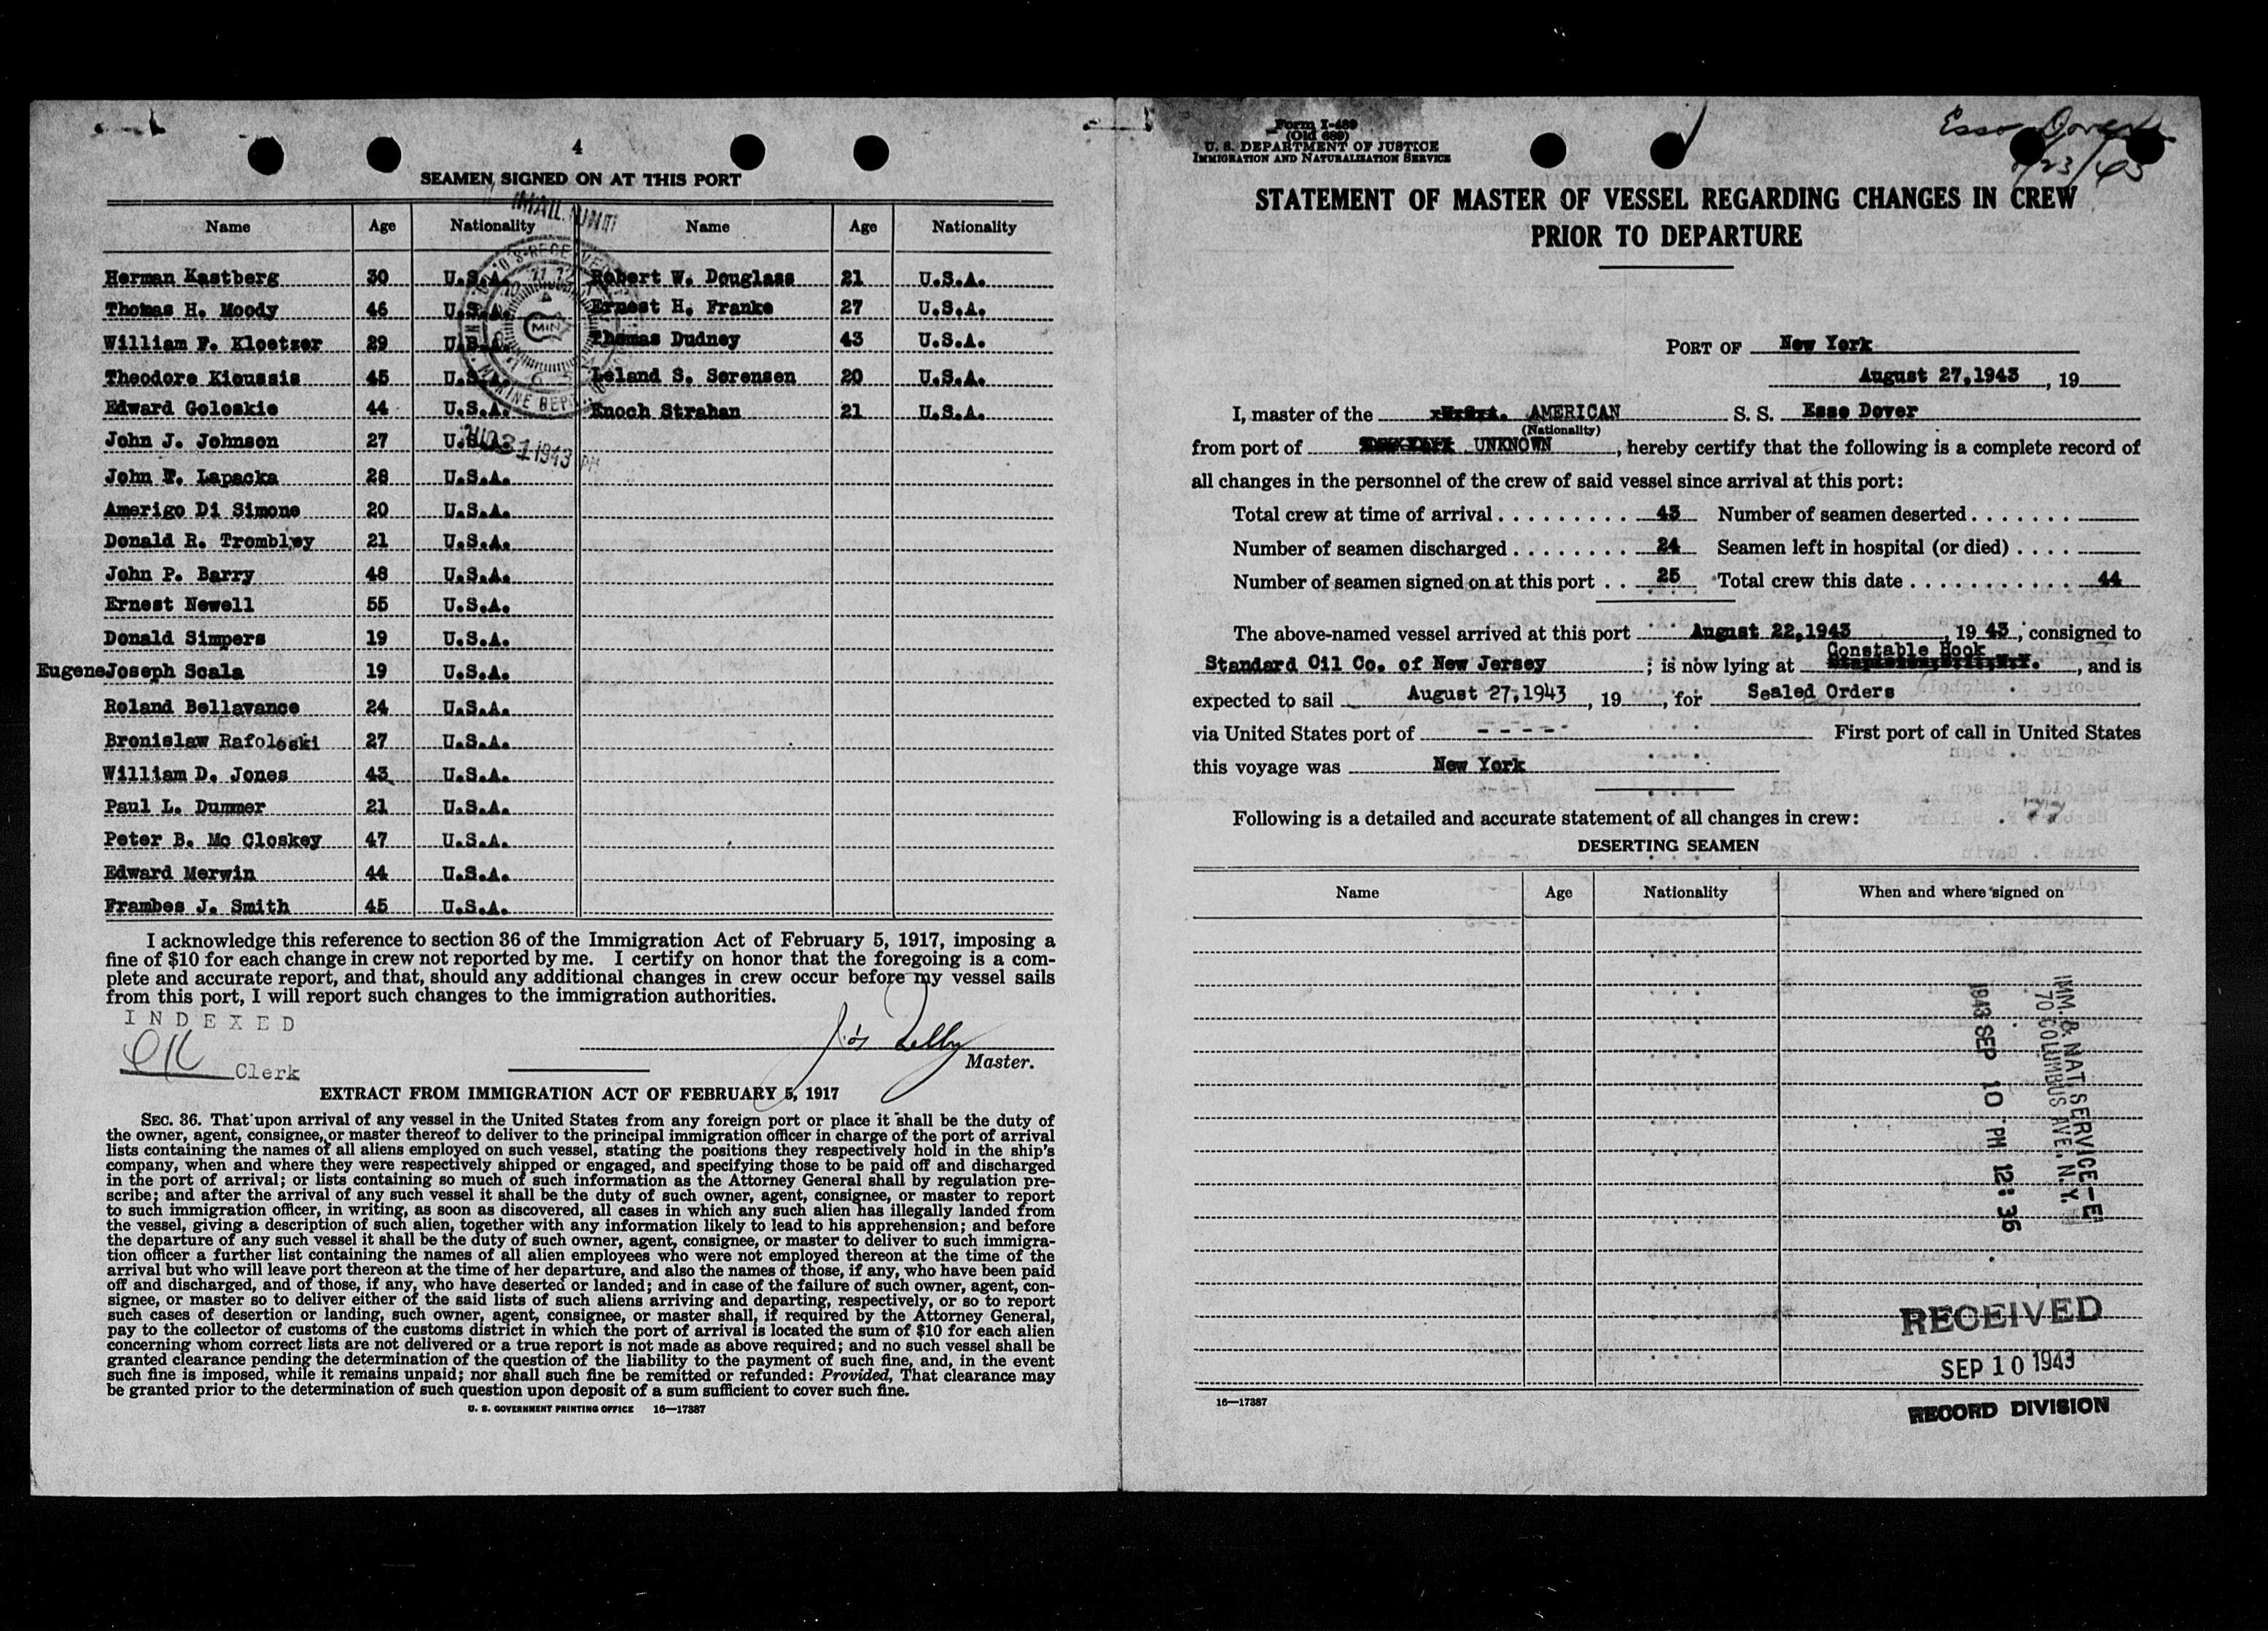 4
SEAMEN SIGNED ON AT THIS PORT
Name Age Nationality Name Age Nationality
Herman Kastberg 30 U.S.A. Robert W. Douglass 21 U.S.A.
Thomas H. Moody 46 U.S.A. Ernest H. Franke 27 U.S.A.
William F. Kloetzer 29 U.S.A. Thomas Dudney 43 U.S.A.
Theodore Kioussis 45 U.S.A. Leland S. Sorensen 20 U.S.A.
Edward Goloskie 44 U.S.A. Enoch Strahan 21 U.S.A.
John J. Johnson 27 U.S.A.
John F. Lapacka 28 U.S.A.
Amerigo Di Simone 20 U.S.A.
Donald R. Trombley 21 U.S.A.
John P. Barry 48 U.S.A.
Ernest Newell 55 U.S.A.
Donald Simpers 19 U.S.A.
Eugene Joseph Scala 19 U.S.A.
Roland Bellavance 24 U.S.A.
Bronislaw Rafoloski 27 U.S.A.
William D. Jones 43 U.S.A.
Paul L. Dummer 21 U.S.A.
Peter B. Mc Closkey 47 U.S.A.
Edward Merwin 44 U.S.A.
Frambes J. Smith 45 U.S.A.
I acknowledge this reference to section 36 of the Immigration Act of February 5, 1917, imposing a
fine of $10 for each change in crew not reported by me. I certify on honor that the foregoing is a com-
plete and accurate report, and that, should any additional changes in crew occur before my vessel sails
from this port, I will report such changes to the immigration authorities.
INDEXED
Clerk
Master.
EXTRACT FROM IMMIGRATION ACT OF FEBRUARY 5, 1917
SEC. 36. That upon arrival of any vessel in the United States from any foreign port or place it shall be the duty of
the owner, agent, consignee, or master thereof to deliver to the principal immigration officer in charge of the port of arrival
lists containing the names of all aliens employed on such vessel, stating the positions they respectively hold in the ship's
company, when and where they were respectively shipped or engaged, and specifying those to be paid off and discharged
in the port of arrival; or lists containing so much of such information as the Attorney General shall by regulation pre-
scribe; and after the arrival of any such vessel it shall be the duty of such owner, agent, consignee, or master to report
to such immigration officer, in writing, as soon as discovered, all cases in which any such alien has illegally landed from
the vessel, giving a description of such alien, together with any information likely to lead to his apprehension; and before
the departure of any such vessel it shall be the duty of such owner, agent, consignee, or master to deliver to such immigra-
tion officer a further list containing the names of all alien employees who were not employed thereon at the time of the
arrival but who will leave port thereon at the time of her departure, and also the names of those, if any, who have been paid
off and discharged, and of those, if any, who have deserted or landed; and in case of the failure of such owner, agent, con-
signee, or master so to deliver either of the said lists of such aliens arriving and departing, respectively, or so to report
such cases of desertion or landing, such owner, agent, consignee, or master shall, if required by the Attorney General,
pay to the collector of customs of the customs district in which the port of arrival is located the sum of $10 for each alien
concerning whom correct lists are not delivered or a true report is not made as above required; and no such vessel shall be
granted clearance pending the determination of the question of the liability to the payment of such fine, and, in the event
such fine is imposed, while it remains unpaid; nor shall such fine be remitted or refunded: Provided, That clearance may
be granted prior to the determination of such question upon deposit of a sum sufficient to cover such fine.
U. S. GOVERNMENT PRINTING OFFICE 16—17387
Form I-489
(Old 689)
U. S. DEPARTMENT OF JUSTICE
IMMIGRATION AND NATURALIZATION SERVICE
Esso Dover
STATEMENT OF MASTER OF VESSEL REGARDING CHANGES IN CREW
PRIOR TO DEPARTURE
PORT OF New York
August 27,1943, 19
I, master of the AMERICAN S. S. Esso Dover
(Nationality)
from port of UNKNOWN, hereby certify that the following is a complete record of
all changes in the personnel of the crew of said vessel since arrival at this port:
Total crew at time of arrival 43 Number of seamen deserted
Number of seamen discharged 24 Seamen left in hospital (or died)
Number of seamen signed on at this port 25 Total crew this date 44
The above-named vessel arrived at this port August 22,1943, 19 43, consigned to
Constable Hook
Standard Oil Co. of New Jersey; is now lying at, and is
expected to sail August 27,1943, 19, for Sealed Orders
via United States port of - - - - - First port of call in United States
this voyage was New York
Following is a detailed and accurate statement of all changes in crew:
DESERTING SEAMEN
Name Age Nationality When and where signed on
IMM. & NAT. SERVICE-E
70 COLUMBUS AVE. N.Y.
1943 SEP 10 PM 12:36
RECEIVED
SEP 10 1943
RECORD DIVISION
16—17387